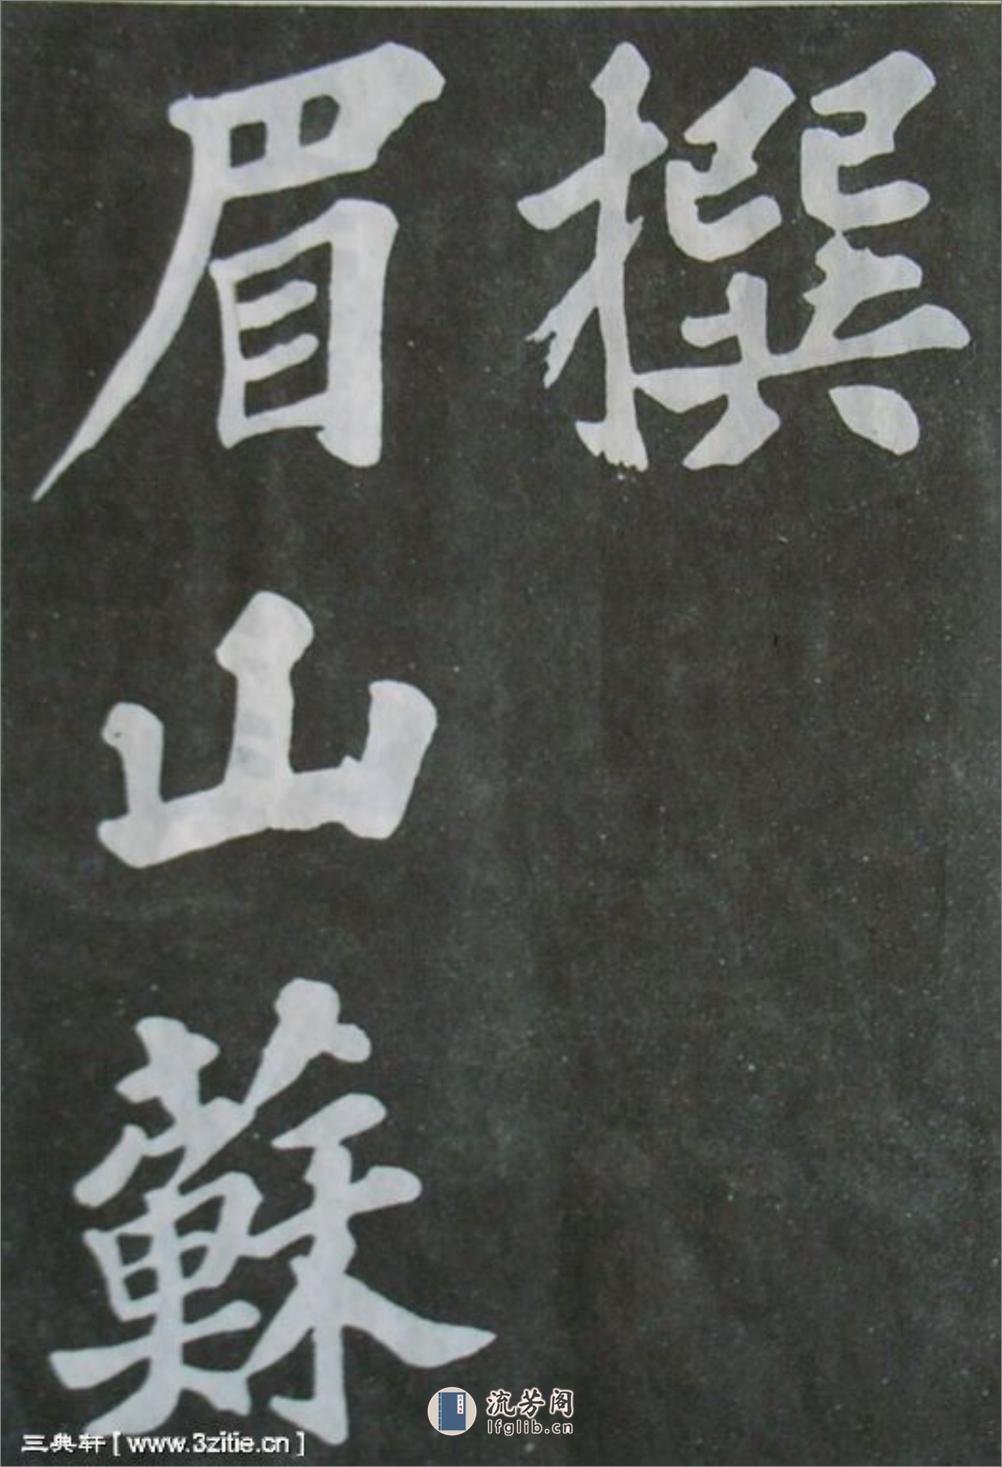 撰
眉山蘇
三典轩[www.3zitie.cn]
流芳阁
lfglib.cn